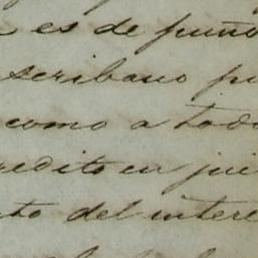 es de puño
scribano pu
como a todo
redito en jui
to del intere